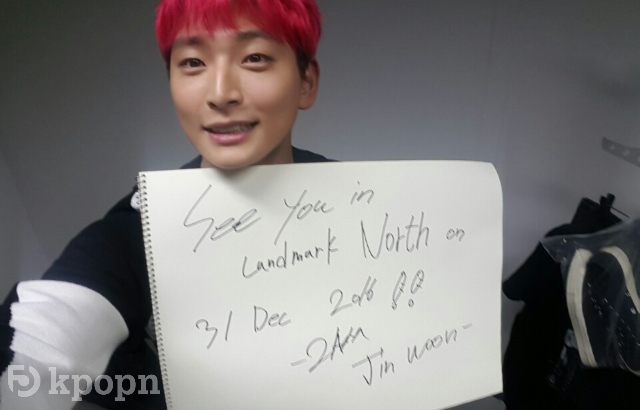 See You in
Landmark North on
31 Dec 2016 !!
-2AM
Jin woon-
kpopn